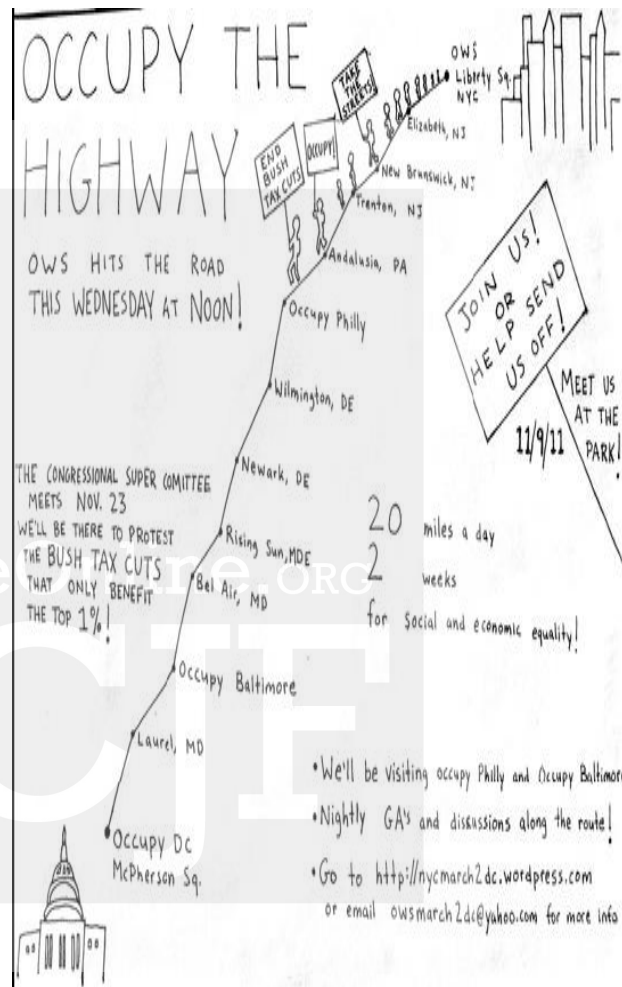 OCCUPY THE
HIGHWAY
OWS HITS THE ROAD
THIS WEDNESDAY AT NOON!
END
BUSH
TAX CUTS
OCCUPY!
TAKE
THE
STREETS!
OWS
Liberty Sq.
NYC
Elizabeth, NJ
New Brunswick, NJ
Trenton, NJ
Andalusia, PA
Occupy Philly
Wilmington, DE
Newark, DE
Rising Sun, MDE
Bel Air, MD
Occupy Baltimore
Laurel, MD
Occupy DC
McPherson Sq.
JOIN US!
OR
HELP SEND
US OFF!
MEET US
AT THE
PARK!
11/9/11
THE CONGRESSIONAL SUPER COMITTEE
MEETS NOV. 23
WE'LL BE THERE TO PROTEST
THE BUSH TAX CUTS
THAT ONLY BENEFIT
THE TOP 1%!
20 miles a day
2 weeks
for social and economic equality!
•We'll be visiting occupy Philly and Occupy Baltimore
•Nightly GA's and discussions along the route!
•Go to http://nycmarch2dc.wordpress.com
or email owsmarch2dc@yahoo.com for more info
eOnline.ORG
CJF